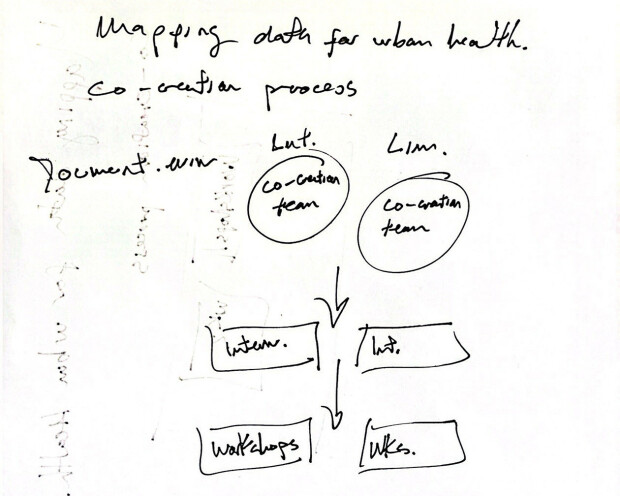 Mapping data for urban health.
co-creation process
Lut. Lim.
co-creation
team
co-creation
team
Interv. Int.
Workshops Wks.